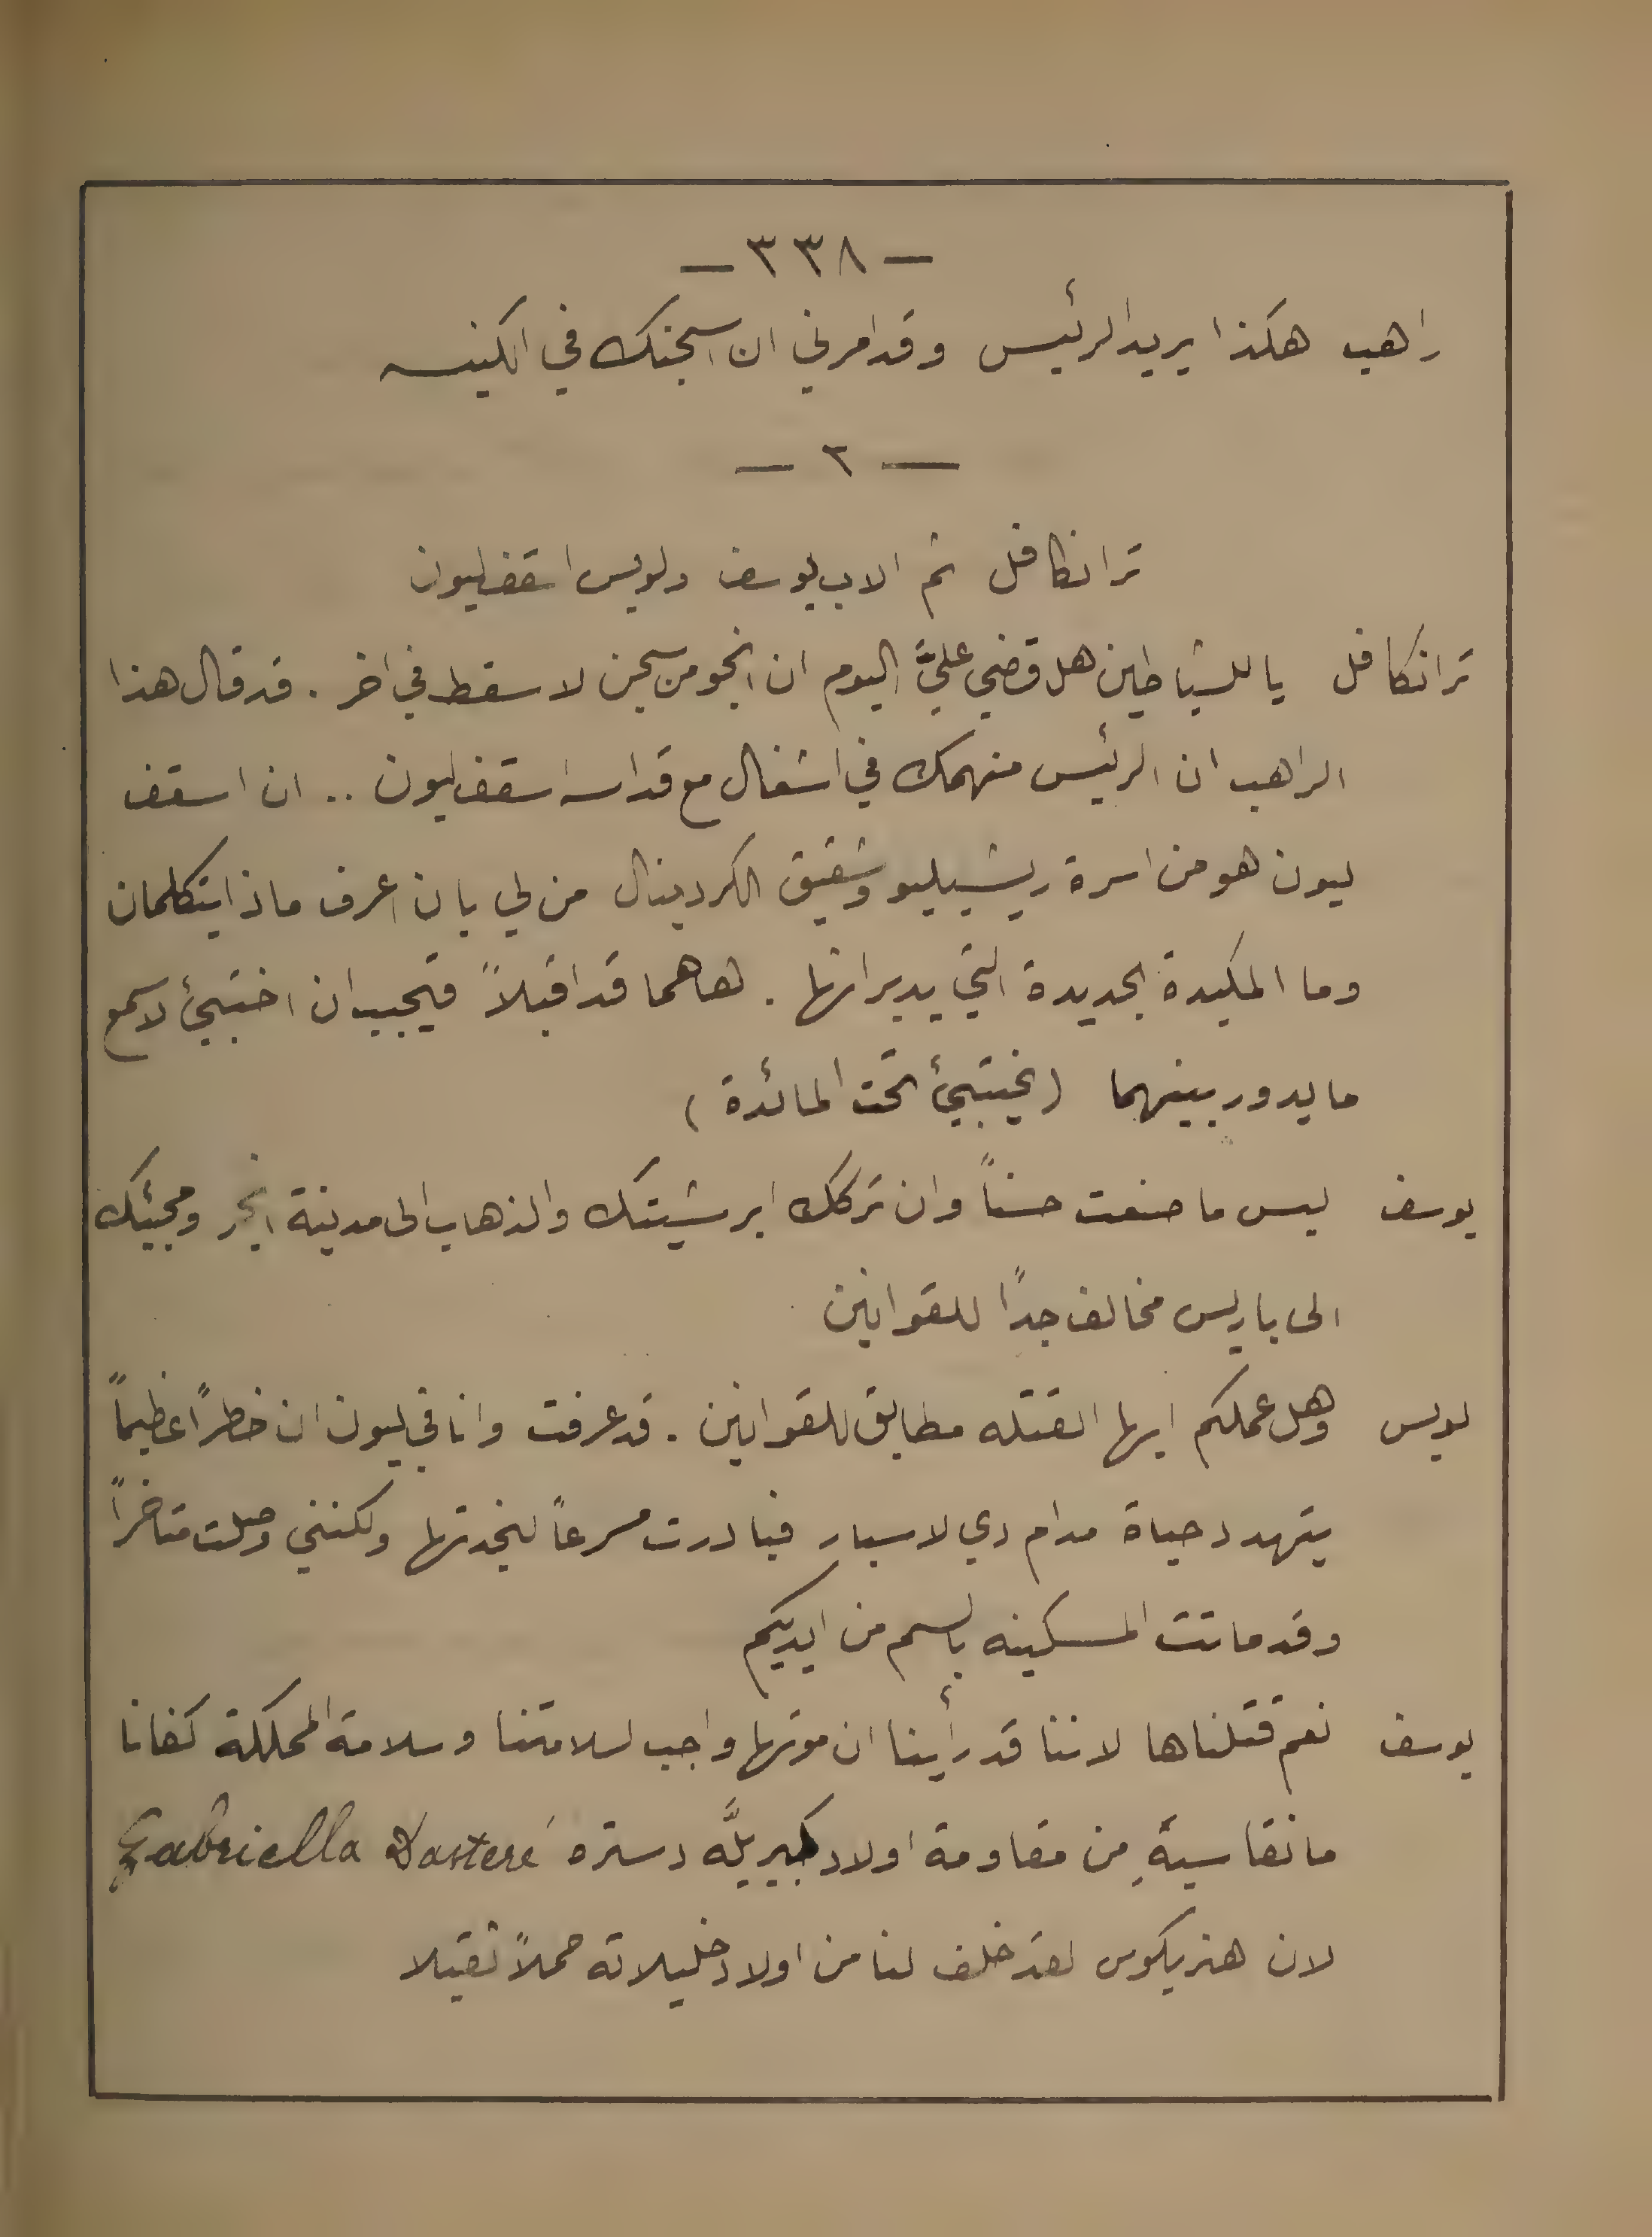 — ٣٣٨ —
راهب هكذا يريد الرئيس وقد امرني ان اسجنك في الكنيسه
— ٢ —
ترانكافل ثم الاب يوسف ولويس اسقف ليون
ترانكافل ياللشياطين هل قضي عليَّ اليوم ان انجو من سجن لاسقط في اخر . قد قال هذا
الراهب ان الرئيس منهمك في اشغال مع قداسه اسقف ليون .. ان اسقف
ليون هو من اسرة ريشيليو وشقيق الكردينال من لي بان اعرف ماذا يتكلمان
وما المكيدة الجديدة التي يدبرانها . هاهما قد اقبلاً فيجب ان اختبئ لاسمع
ما يدور بينهما (يختبئ تحت المائدة)
يوسف ليس ما صنعت حسناً وان تركك ابرشيتك والذهاب الى مدينة ومجيئك
الى باريس مخالف جداً للقوانين
لويس وهل عملكم ايها القتله مطابق للقوانين . قد عرفت وانا في ليون ان خطراً عظيماً
يتهدد حياة مدام دي لاسيار فبادرت مسرعاً لنجدتها ولكنني وصلت متاخراً
وقد ماتت المسكينه بالسم من ايديكم
يوسف نعم قتلناها لاننا قد رأينا ان موتها واجب لسلامتنا وسلامة المملكة كفانا
ما نقاسيهِ من مقاومة اولاد كبريلَّه دستره Gabriella Dasteré
لان هنريكوس لقد خلف لنا من اولاد خليلاته حملاً ثقيلا